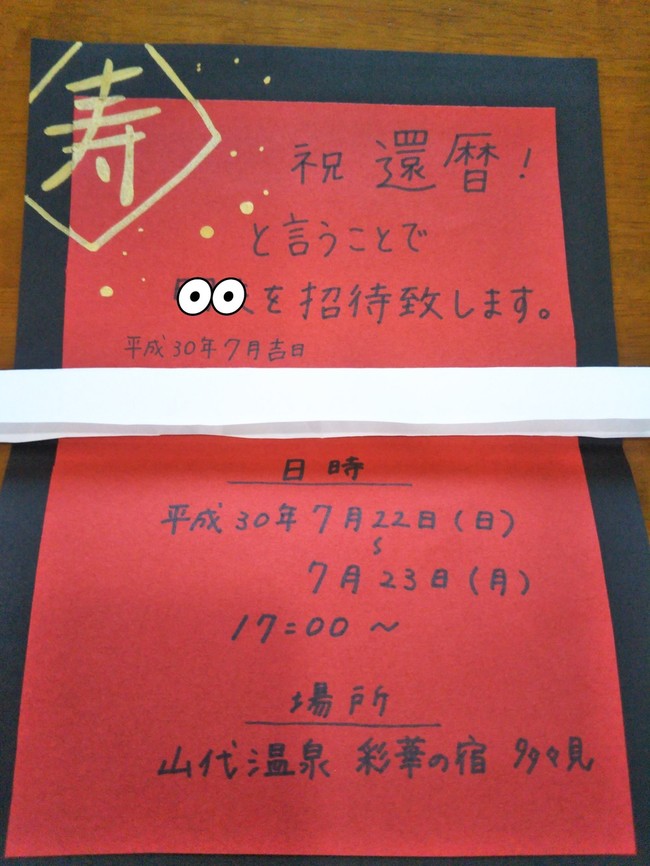 寿
祝 還暦!
と言うことで
を招待致します。
平成30年7月吉日
日時
平成30年7月22日(日)
〜
7月23日(月)
17:00〜
場所
山代温泉 彩華の宿 多々見